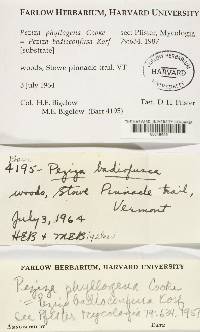 FARLOW HERBARIUM, HARVARD UNIVERSITY
Peziza phyllogena Cooke see: Pfister, Mycologia
= Peziza badioconfusa Korf
[substrate]
woods, Stowe pinnacle trail, VT
3 July 1964
Col. H.E. Bigelow Det. D.H. Pfister
M.E. Bigelow (Barr 4195)
FARLOW HERBARIUM
HARVARD
UNIVERSITY
4195- Peziza
woods, Stowe Pinnacle trail,
Vermont
July 3, 1964
HEB & MEBigelow
FARLOW HERBARIUM, HARVARD UNIVERSITY
Peziza phyllogena Cooke
= Peziza badioconfusa Korf
see Pfister Mycologia